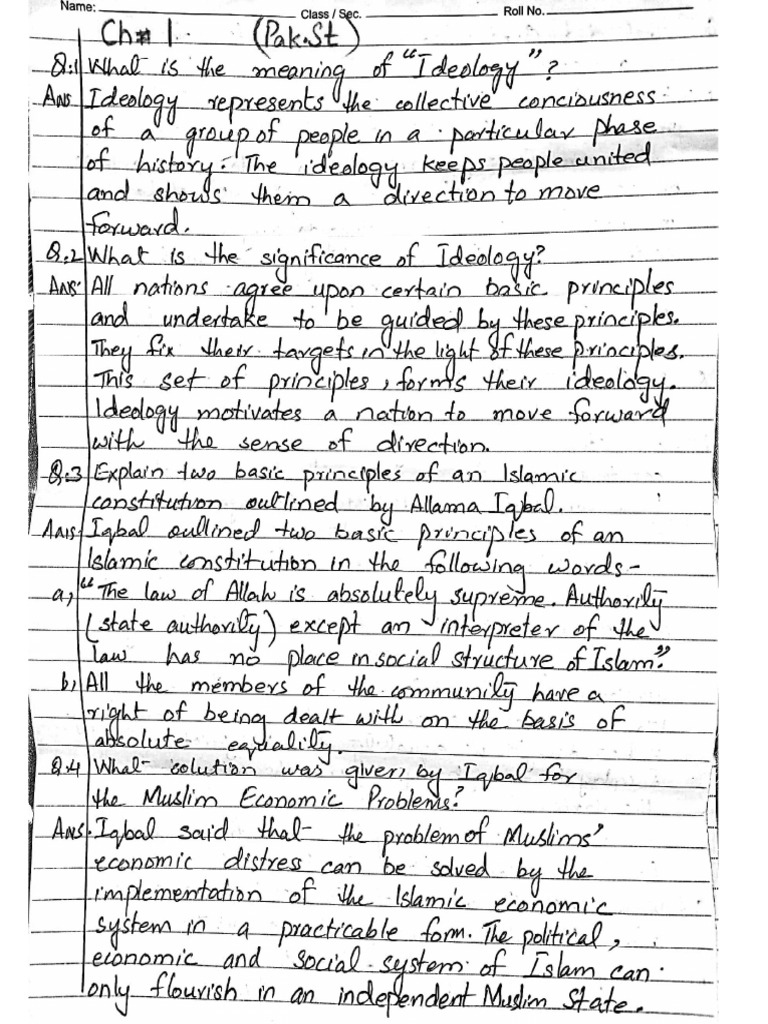 Name: Class / Sec. Roll No.
Ch# 1 (Pak.St)
Q:1 What is the meaning of "Ideology"?
Ans Ideology represents the collective conciousness
of a group of people in a particular phase
of history. The ideology keeps people united
and shows them a direction to move
forward.
Q.2 What is the significance of Ideology?
Ans: All nations agree upon certain basic principles
and undertake to be guided by these principles.
They fix their targets in the light of these principles.
This set of principles, forms their ideology.
Ideology motivates a nation to move forward
with the sense of direction.
Q.3 Explain two basic principles of an Islamic
constitution outlined by Allama Iqbal.
Ans. Iqbal outlined two basic principles of an
Islamic constitution in the following words-
a, "The law of Allah is absolutely supreme. Authority
(state authority) except an interpreter of the
law has no place in social structure of Islam."
b, All the members of the community have a
right of being dealt with on the basis of
absolute equality.
Q.4 What solution was given by Iqbal for
the Muslim Economic Problems?
Ans. Iqbal said that the problem of Muslims'
economic distress can be solved by the
implementation of the Islamic economic
system in a practicable form. The political,
economic and social system of Islam can
only flourish in an independent Muslim State.